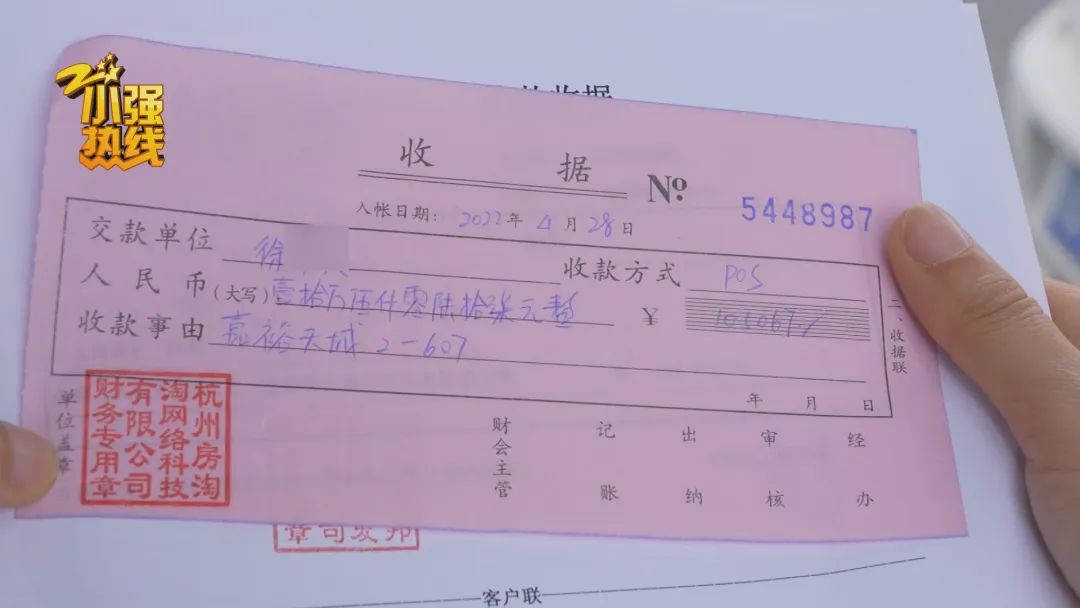 小强
热线
收据
收 据 № 5448987
入帐日期: 2022 年 4 月 28 日
交款单位 徐 收款方式 POS
人民币(大写) ¥
收款事由 嘉裕天城 2-607
二、收据联
年 月 日
单位盖章 财会主管 记账 出纳 审核 经办
杭州房淘
淘网络科技
有限公司
财务专用章
客户联